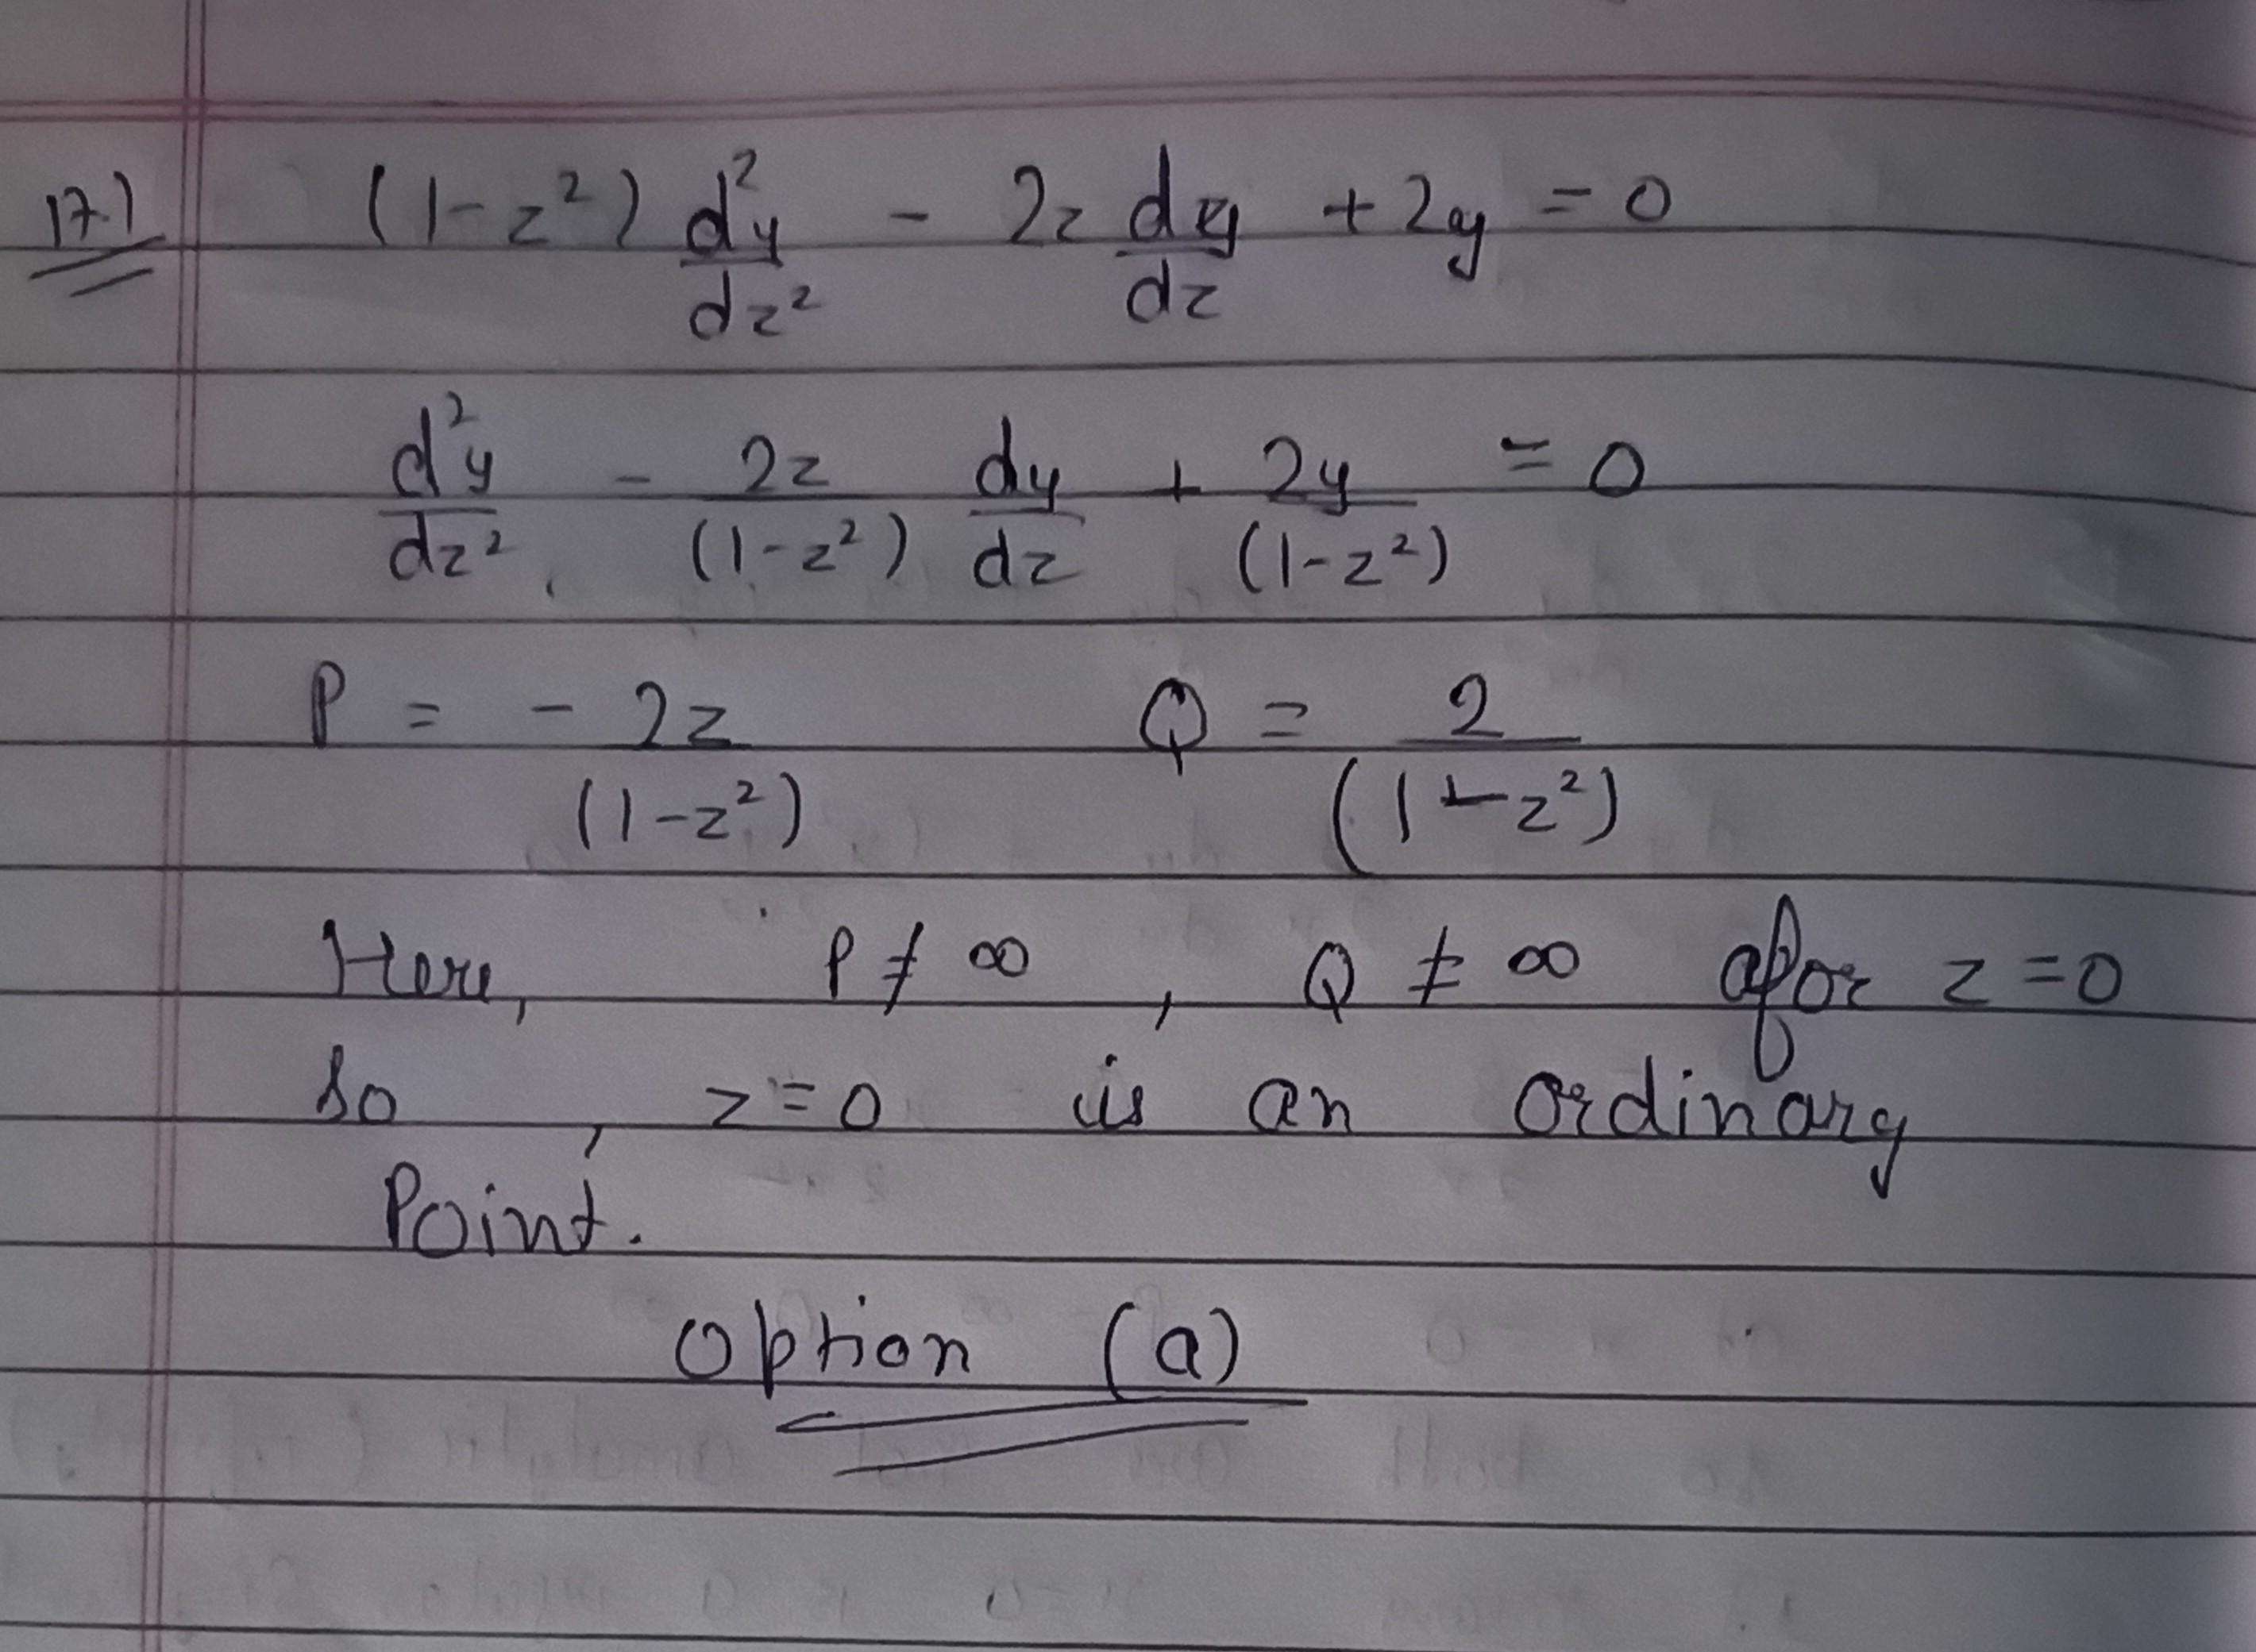 17.) (1-z²) d²y/dz² - 2z dy/dz + 2y = 0
d²y/dz² - 2z/(1-z²) dy/dz + 2y/(1-z²) = 0
P = -2z/(1-z²) Q = 2/(1-z²)
Here, P ≠ ∞ , Q ≠ ∞ for z = 0
So, z = 0 is an ordinary
Point.
Option (a)